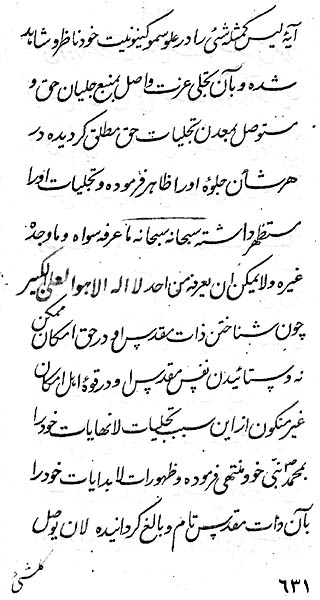 آیهٔ لیس کمثله شئ را در علو سمو کینونیت خود ناظر و شاهد
شده و بآن تجلی عزت واصل بمنبع جلیان حق و
متوصل بمعدن تجلیات حق مطلق گردیده در
هر شأن جلوهٔ او را ظاهر فرموده و تجلیات او را
مستظهر داشته سبحانه سبحانه ما عرفه سواه و ما وجده
غیره و لا یمکن ان یعرفه من احد لا اله الا هو العلی الکبیر
چون شناختن ذات مقدس او در حق امکان ممکن
نه و ستائیدن نفس مقدس او در قوهٔ اهل امکان
غیر متکون از این سبب تجلیات لا نهایات خود را
بمحمد ص نبی خود منتهی فرموده و ظهورات لا بدایات خود را
بآن ذات مقدس تام و بالغ گردانیده لان یوصل
کلشئ
۶۳۱